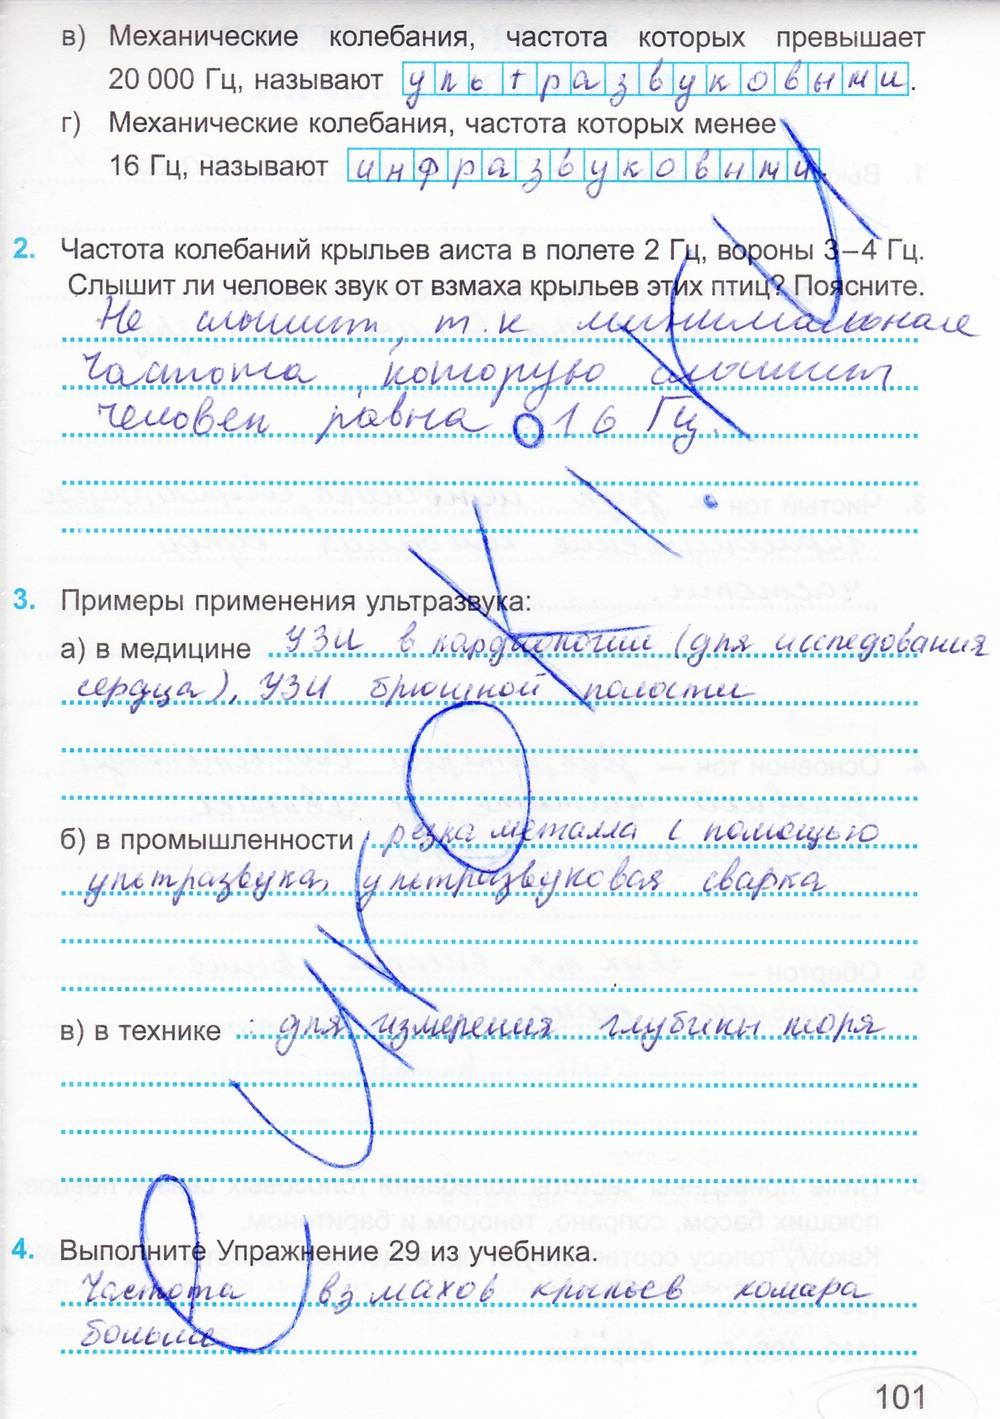 в) Механические колебания, частота которых превышает
20 000 Гц, называют ультразвуковыми.
г) Механические колебания, частота которых менее
16 Гц, называют инфразвуковыми.
2. Частота колебаний крыльев аиста в полете 2 Гц, вороны 3–4 Гц.
Слышит ли человек звук от взмаха крыльев этих птиц? Поясните.
Не слышит, т.к минимальная
частота, которую слышит
человек равна 16 Гц.
3. Примеры применения ультразвука:
а) в медицине УЗИ в кардиологии (для исследования
сердца), УЗИ брюшной полости
б) в промышленности резка металла с помощью
ультразвука, ультразвуковая сварка
в) в технике для измерения глубины моря
4. Выполните Упражнение 29 из учебника.
Частота взмахов крыльев комара
больше
101